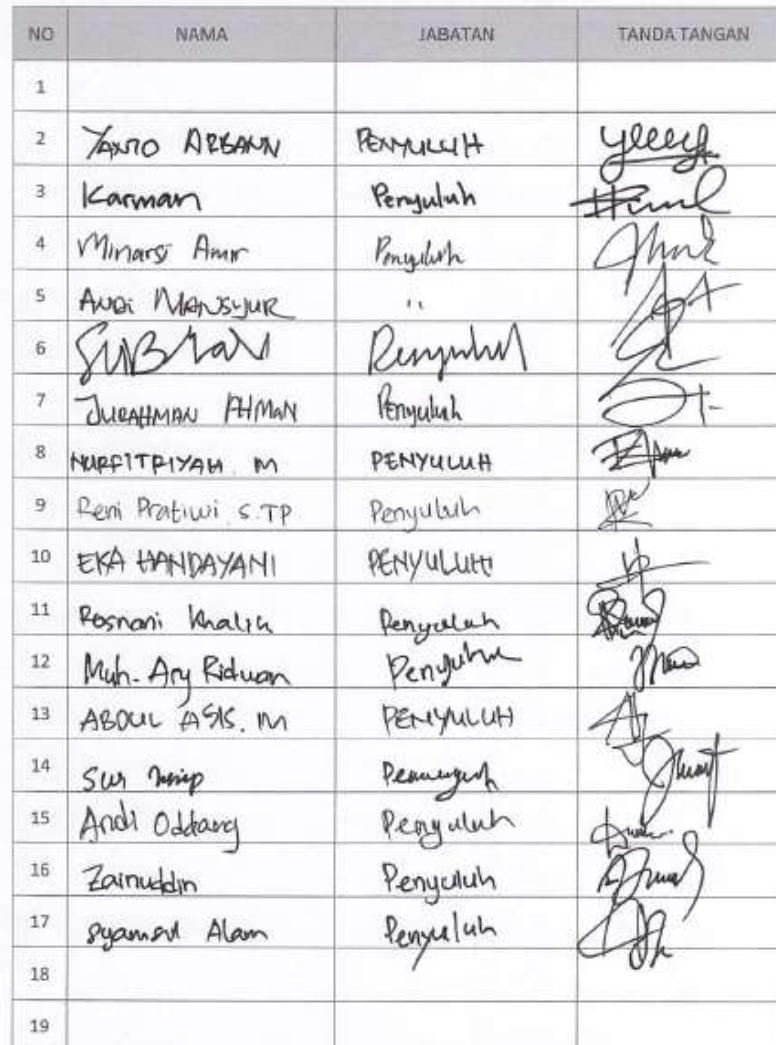 NO NAMA JABATAN TANDA TANGAN
1
2 YANTO PENYULUH
3 Karman Penyuluh
4 Minarsi Amir Penyuluh
5 ANDi MANSYUR "
6 SUBHAN Penyuluh
7 JURAHMAN Penyuluh
8 NURFITRIYAH. M PENYULUH
9 Reni Pratiwi, S.TP Penyuluh
10 EKA HANDAYANI PENYULUH
11 Rosnani Khalik Penyuluh
12 Muh. Ary Riduan Penyuluh
13 ABDUL ASIS. M PENYULUH
14 Sur
15 Andi Oddang Penyuluh
16 Zainuddin Penyuluh
17 Syamsul Alam Penyuluh
18
19